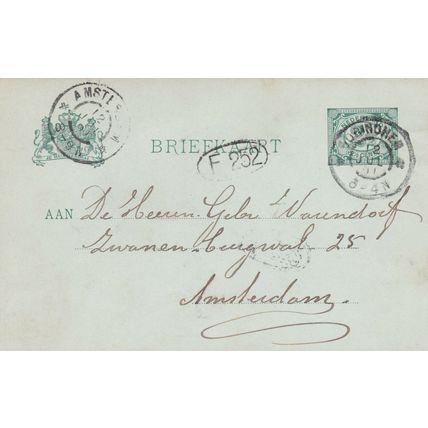 AMST
BRIEFKAART
F 252
GORINCHEM
3-4N
AAN De Heeren Gebr Warendorf
Zwanenburgwal 25
Amsterdam